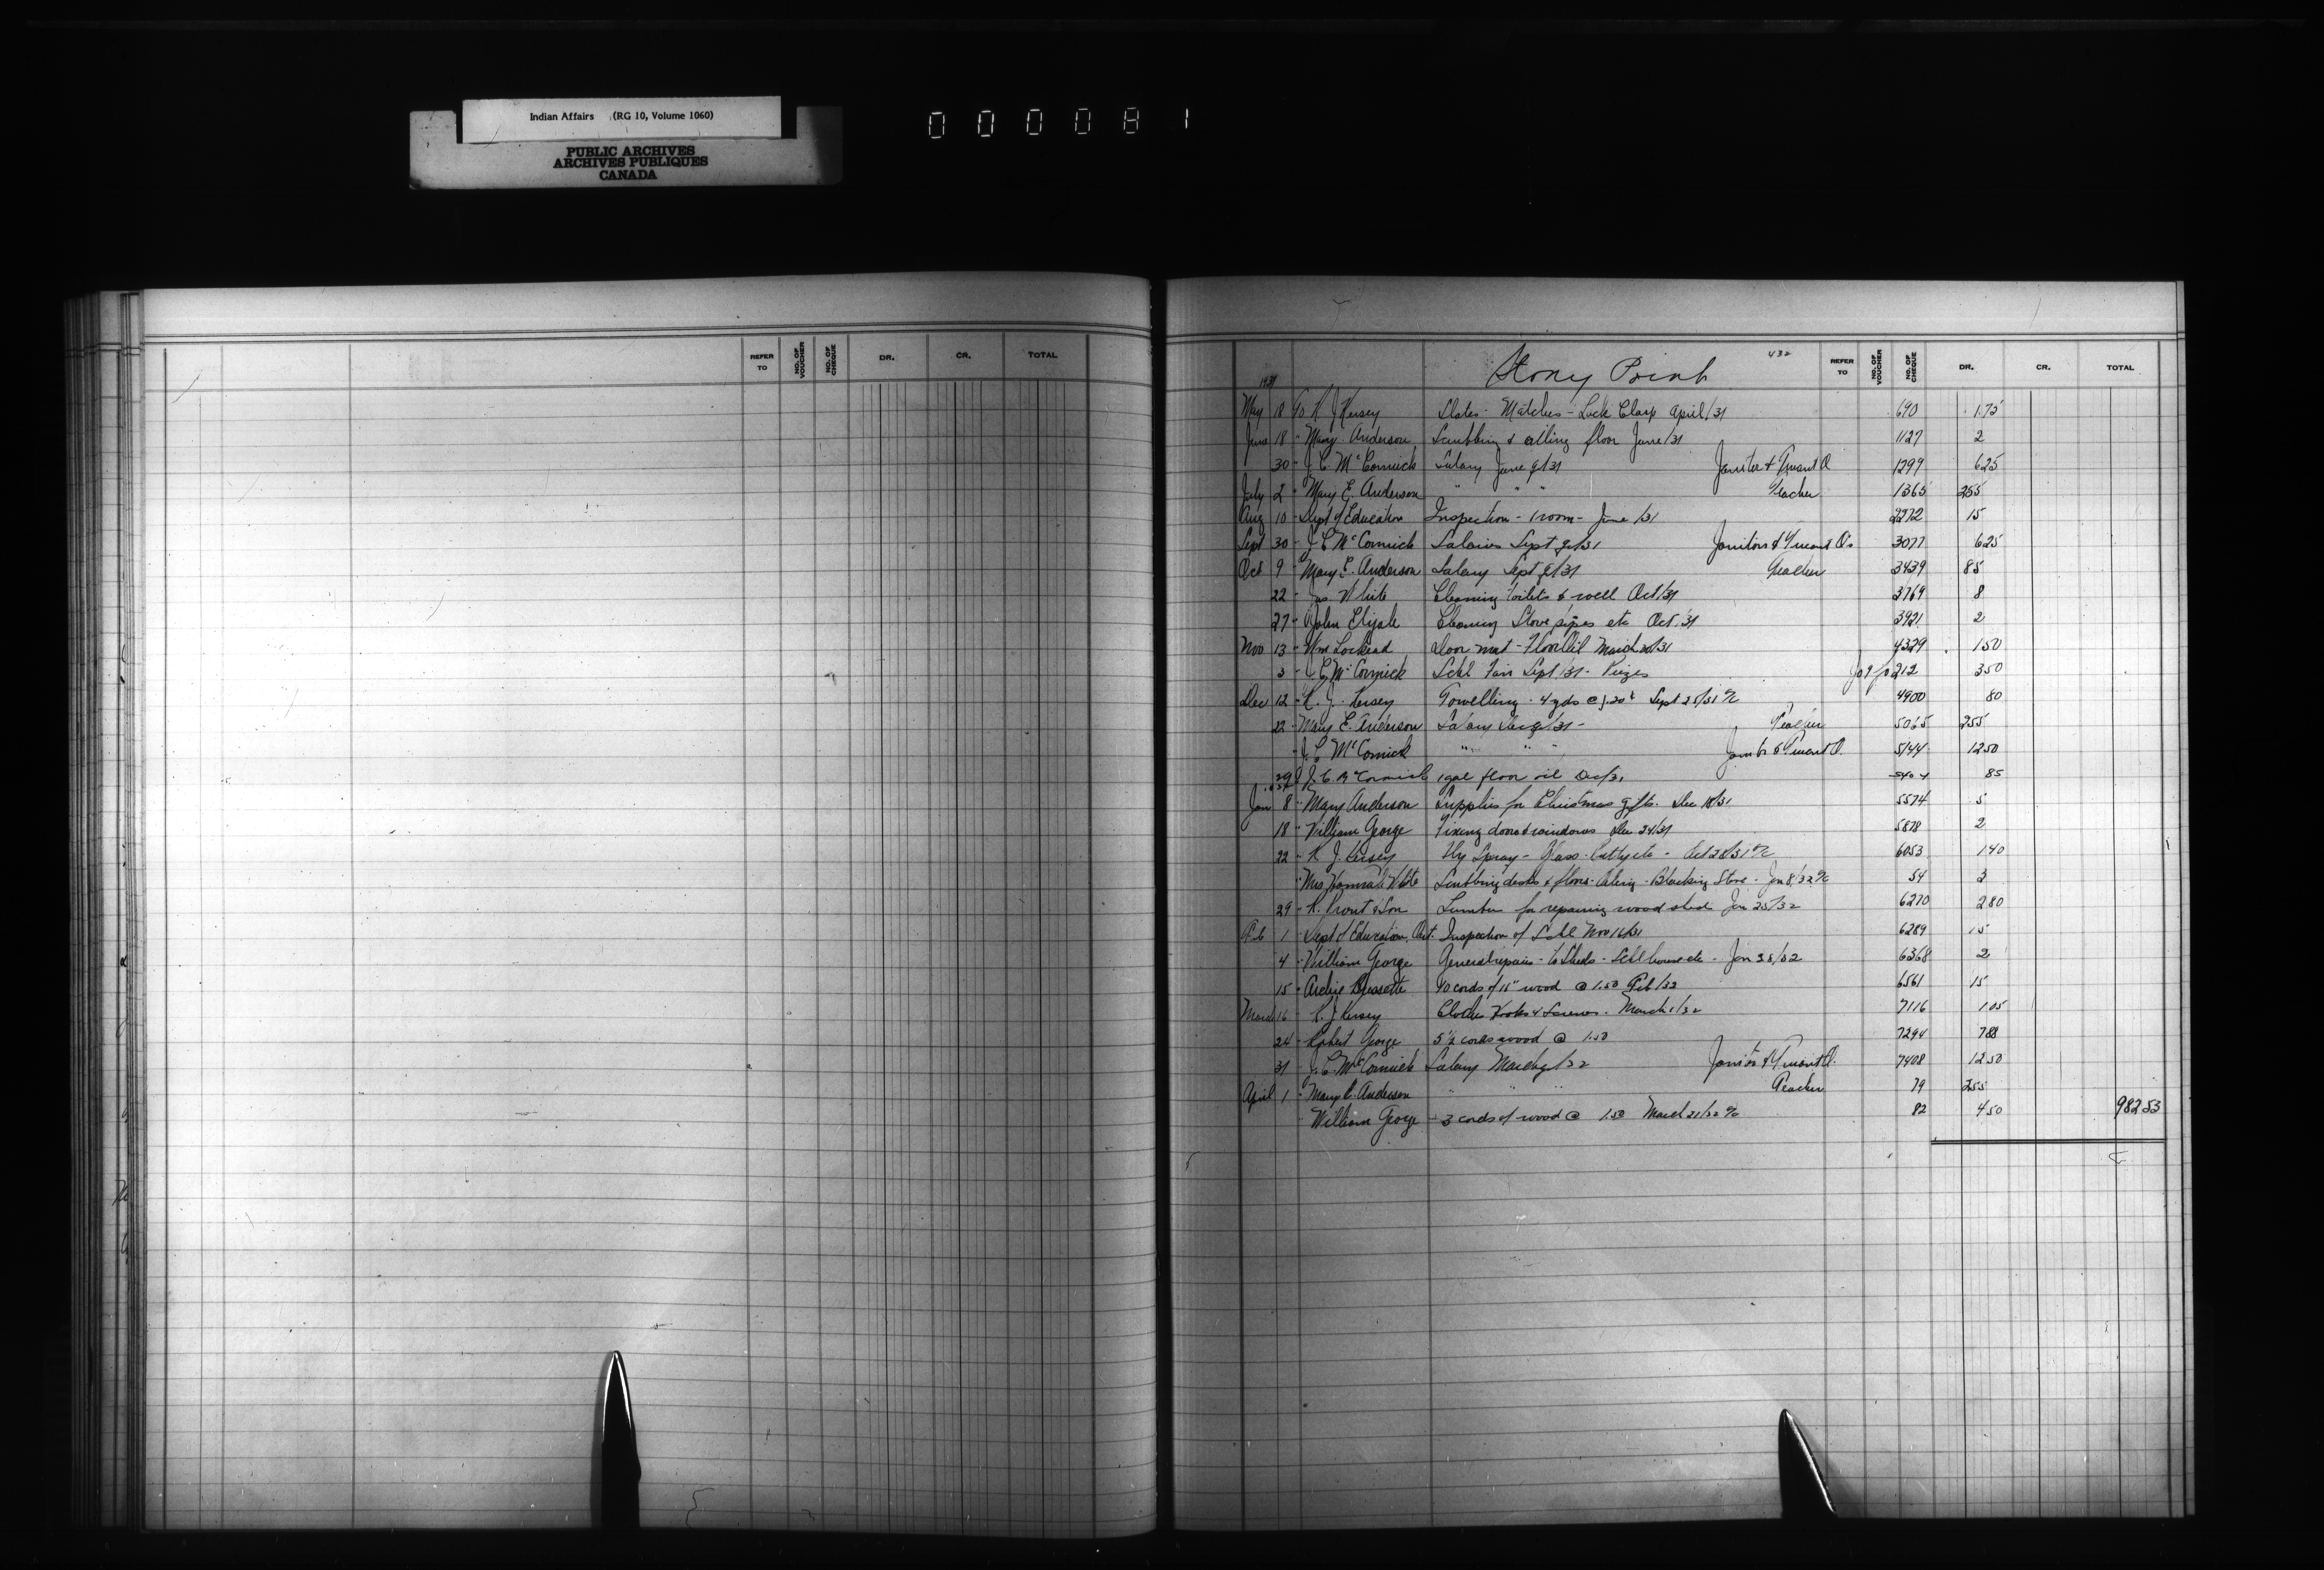 Indian Affairs (RG 10, Volume 1060)
PUBLIC ARCHIVES
ARCHIVES PUBLIQUES
CANADA
000081
REFER TO NO. OF VOUCHER NO. OF CHEQUE DR. CR. TOTAL
Stony Point 432 REFER TO NO. OF VOUCHER NO. OF CHEQUE DR. CR. TOTAL
1931
May 18 To R J Kersey Slates - Matches - Lock Clasp April/31 690 1.75
June 18 " Mary Anderson Scrubbing & oiling floor June/31 1127 2
30 " J. C. McCormick Salary June q/31 Janitor & Truant O 1299 625
July 2 " Mary E. Anderson " " " Teacher 1365 255
Aug 10 " Dept of Education Inspection - 1 room - June /31 2272 15
Sept 30 " J C McCormick Salaries Sept q/31 Janitors & Truant O's 3077 625
Oct 9 " Mary E. Anderson Salary Sept q/31 Teacher 3439 85
22 " Jas White Cleaning toilets & well Oct/31 3769 8
27 " John Elijah Cleaning Stove pipes etc Oct/31 3921 2
Nov 13 " Wm Lockead Door mat - Floor Oil March /31 4329 150
3 " J C McCormick Schl Fair Sept/31 - Prizes 212 350
Dec 12 " R. J. Kersey Towelling - 4 yds @ .20¢ Sept 25/31 a/c 4900 80
22 " Mary E. Anderson Salary Dec q/31 - Teacher 5065 255
" J. C McCormick " " " Janitor & Truant O. 5144 1250
29 " J. C. McCormick 1 gal floor oil Dec/31 5404 85
Jan 8 " Mary Anderson Supplies for Christmas gifts. Dec 18/31 5574 5
18 " William George Fixing doors & windows Dec 24/31 5878 2
22 " R. J. Kersey Fly Spray - Glass - Putty etc - Oct 28/31 a/c 6053 140
" Mrs Hannah White Scrubbing desks & floors - Oiling - Blacking Stove - Jan 8/32 a/c 54 3
29 " R. Prout & Son Lumber for repairing wood shed Jan 25/32 6270 280
Feb 1 " Dept of Education, Ont. Inspection of Schl Nov 16/31 6289 15
4 " William George General repairs - to Sheds - Schl house etc - Jan 28/32 6368 2
15 " Archie 10 cords of 15" wood @ 1.50 Feb/32 6561 15
March 16 " R. J. Kersey Clothes Hooks & Screws. March 1/32 7116 105
24 " Robert George 5 1/2 cords wood @ 1.50 7294 788
31 " J. C. McCormick Salary March q/32 Janitor & Truant O. 7408 1250
April 1 " Mary E. Anderson " " " Teacher 79 255
" William George - 3 cords of wood @ 1.50 March 21/32 a/c 82 450 98253